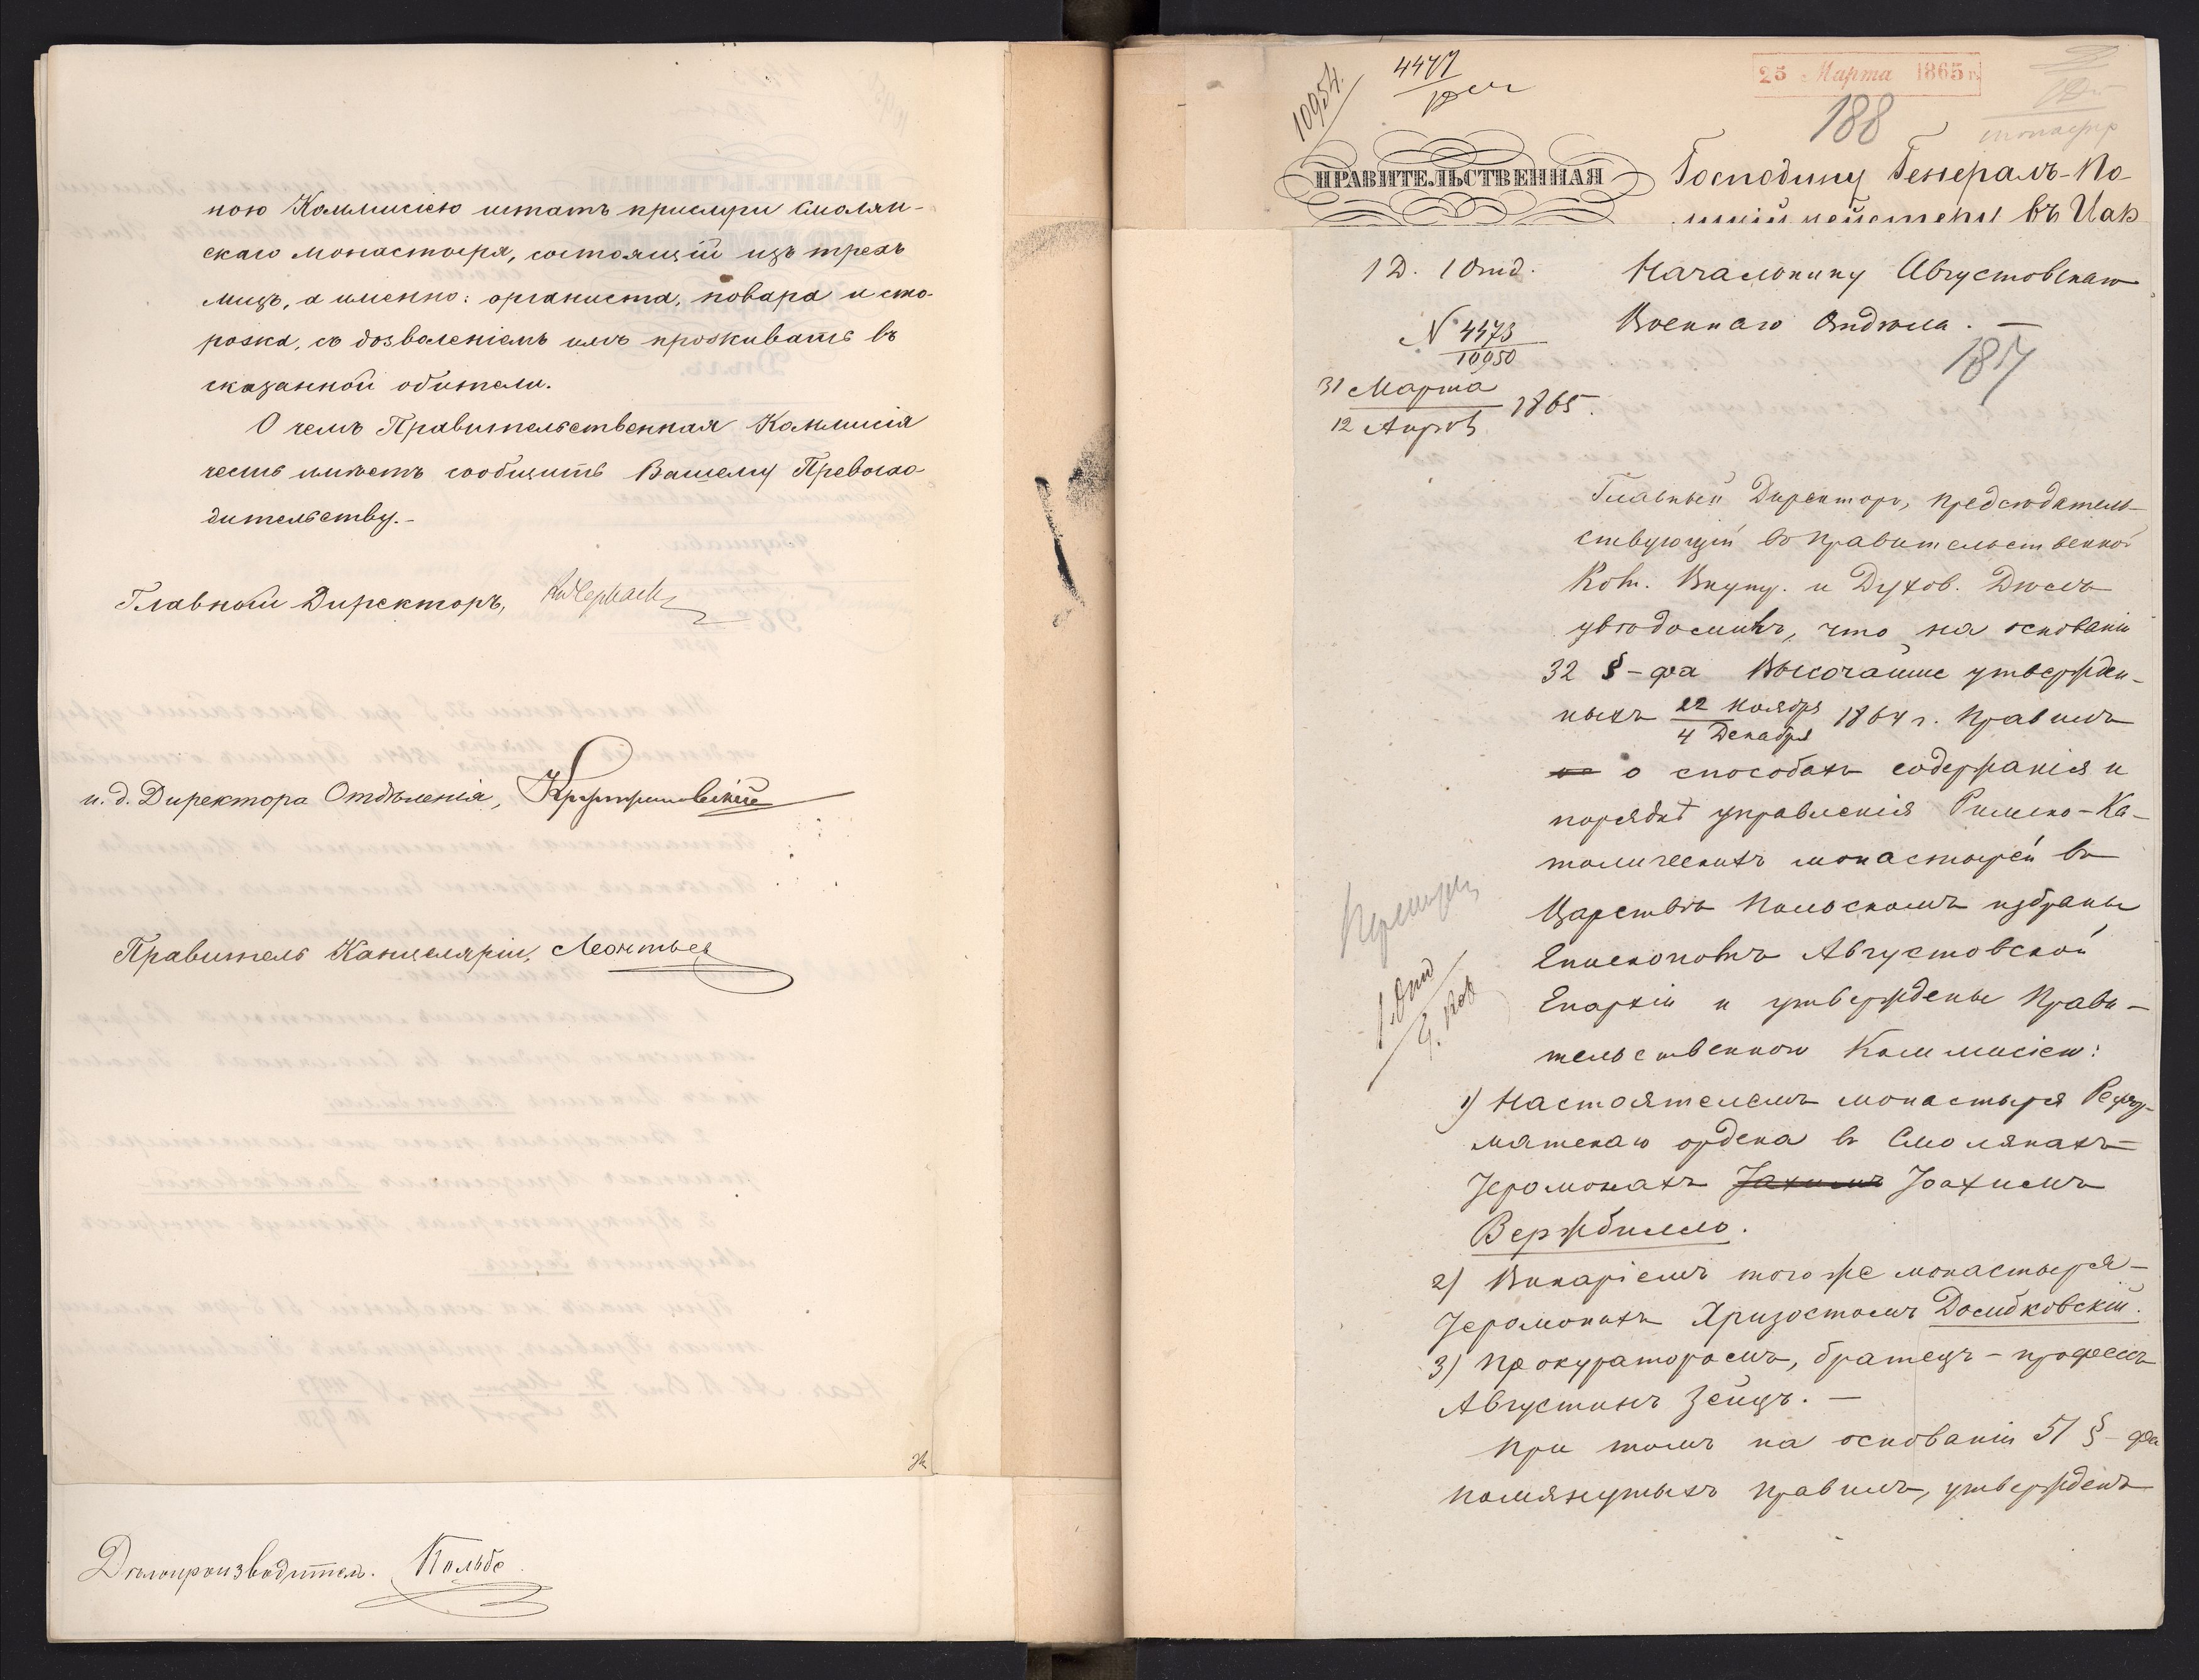 ною Коммисіею штатъ прислуги Смолян-
скаго монастыря, состоящій изъ трехъ
лицъ, а именно: органиста, повара и сто-
рожа, съ дозволеніемъ имъ проживать въ
сказанной обители.
О чемъ Правительственная Коммисія
честь имѣетъ сообщить Вашему Превосхо-
дительству.-
Главный Директоръ,
и. д. Директора Отдѣленія,
Правитель Канцеляріи, Леонтьев
Дѣлопроизводитель. Кольбе.
10954.
4477
25 Марта 1865 г.
188
ПРАВИТЕЛЬСТВЕННАЯ
Господину Генералъ-По-
въ Цар
1 Д. 1 Отд.
Начальнику Августовскаго
Военнаго Отдѣла. —
N 4473
10950
187
31 Марта
12 Апрѣл 1865.
Главный Директоръ, предсѣдатель-
ствующій въ Правительственной
Ком. Внутр. и Духов. Дѣлъ
увѣдомилъ, что на основаніи
32 §-фа Высочайше утвержден-
ныхъ 22 Ноября
4 Декабря 1864 г. Правилъ
о способахъ содержанія и
порядкѣ управленія Римско-Ка-
толическихъ монастырей въ
Царствѣ Польскомъ избраны
Епископомъ Августовской
Епархіи и утверждены Прави-
тельственною Коммисіею:
1) Настоятелемъ монастыря Рефор-
матскаго ордена въ Смолянахъ —
Іеромонахъ Іоахимъ
Вержбилло.
2) Викаріемъ того же монастыря —
Іеромонахъ Хризостомъ Домбковскій.
3) Прокураторомъ, братецъ - професъ
Августинъ Зейцъ. —
При томъ на основаніи 51 §-фа
помянутыхъ правилъ, утвержденъ
1. Отд